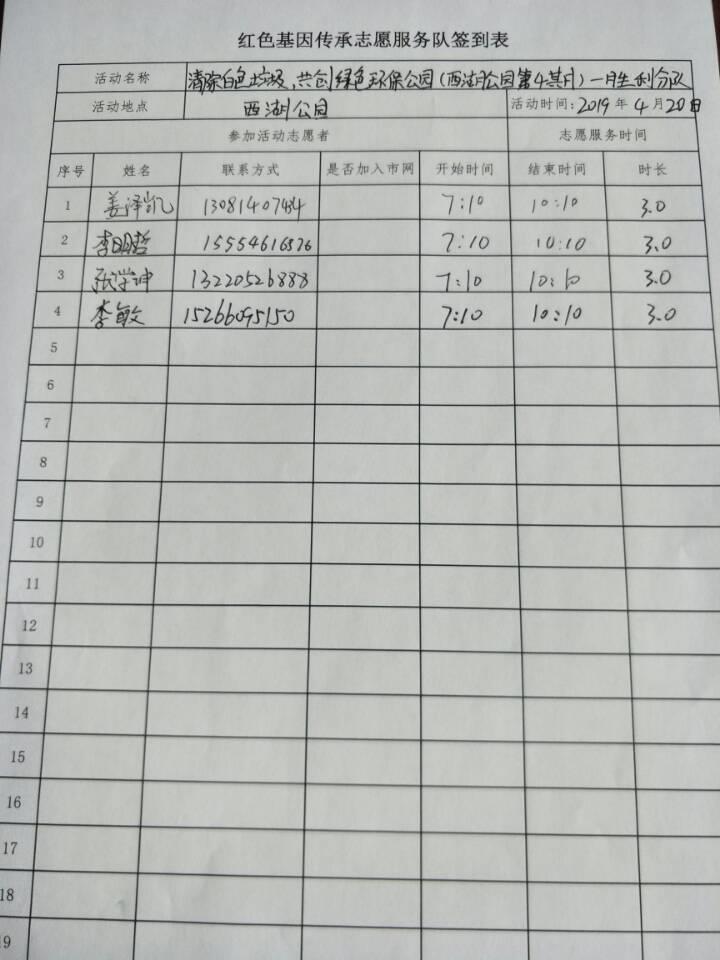 红色基因传承志愿服务队签到表
活动名称 清除白色垃圾,共创绿色环保公园(西湖公园第4期)一月生利分队
活动地点 西湖公园 活动时间:2019年4月20日
参加活动志愿者 志愿服务时间
序号 姓名 联系方式 是否加入市网 开始时间 结束时间 时长
1 姜泽凯 13081407484 7:10 10:10 3.0
2 李明哲 15554616576 7:10 10:10 3.0
3 张学坤 13220526888 7:10 10:10 3.0
4 李敏 15266095150 7:10 10:10 3.0
5
6
7
8
9
10
11
12
13
14
15
16
17
18
19